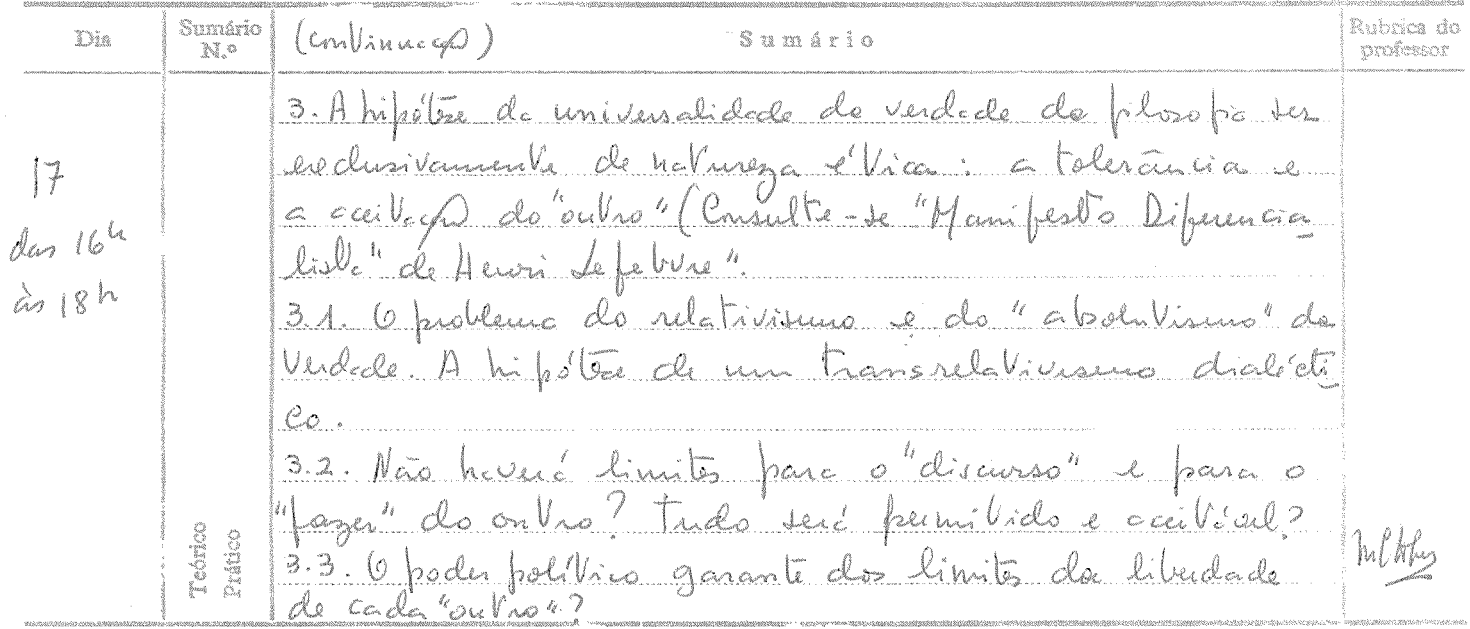 Dia
Sumário N.º
(Continuação) Sumário
Rubrica do professor
17
das 16h
às 18h
3. A hipótese da universalidade da verdade da filosofia ser
exclusivamente de natureza ética: a tolerância e
a aceitação do "outro" (Consulte-se "Manifesto Diferencia
lista" de Henri Lefebvre".
3.1. O problema do relativismo e do "absolutismo" da
Verdade. A hipótese de um transrelativismo dialécti
co.
3.2. Não haverá limites para o "discurso" e para o
"fazer" do outro? Tudo será permitido e aceitável?
3.3. O poder político garante dos limites da liberdade
de cada "outro"?
Teórico
Prático